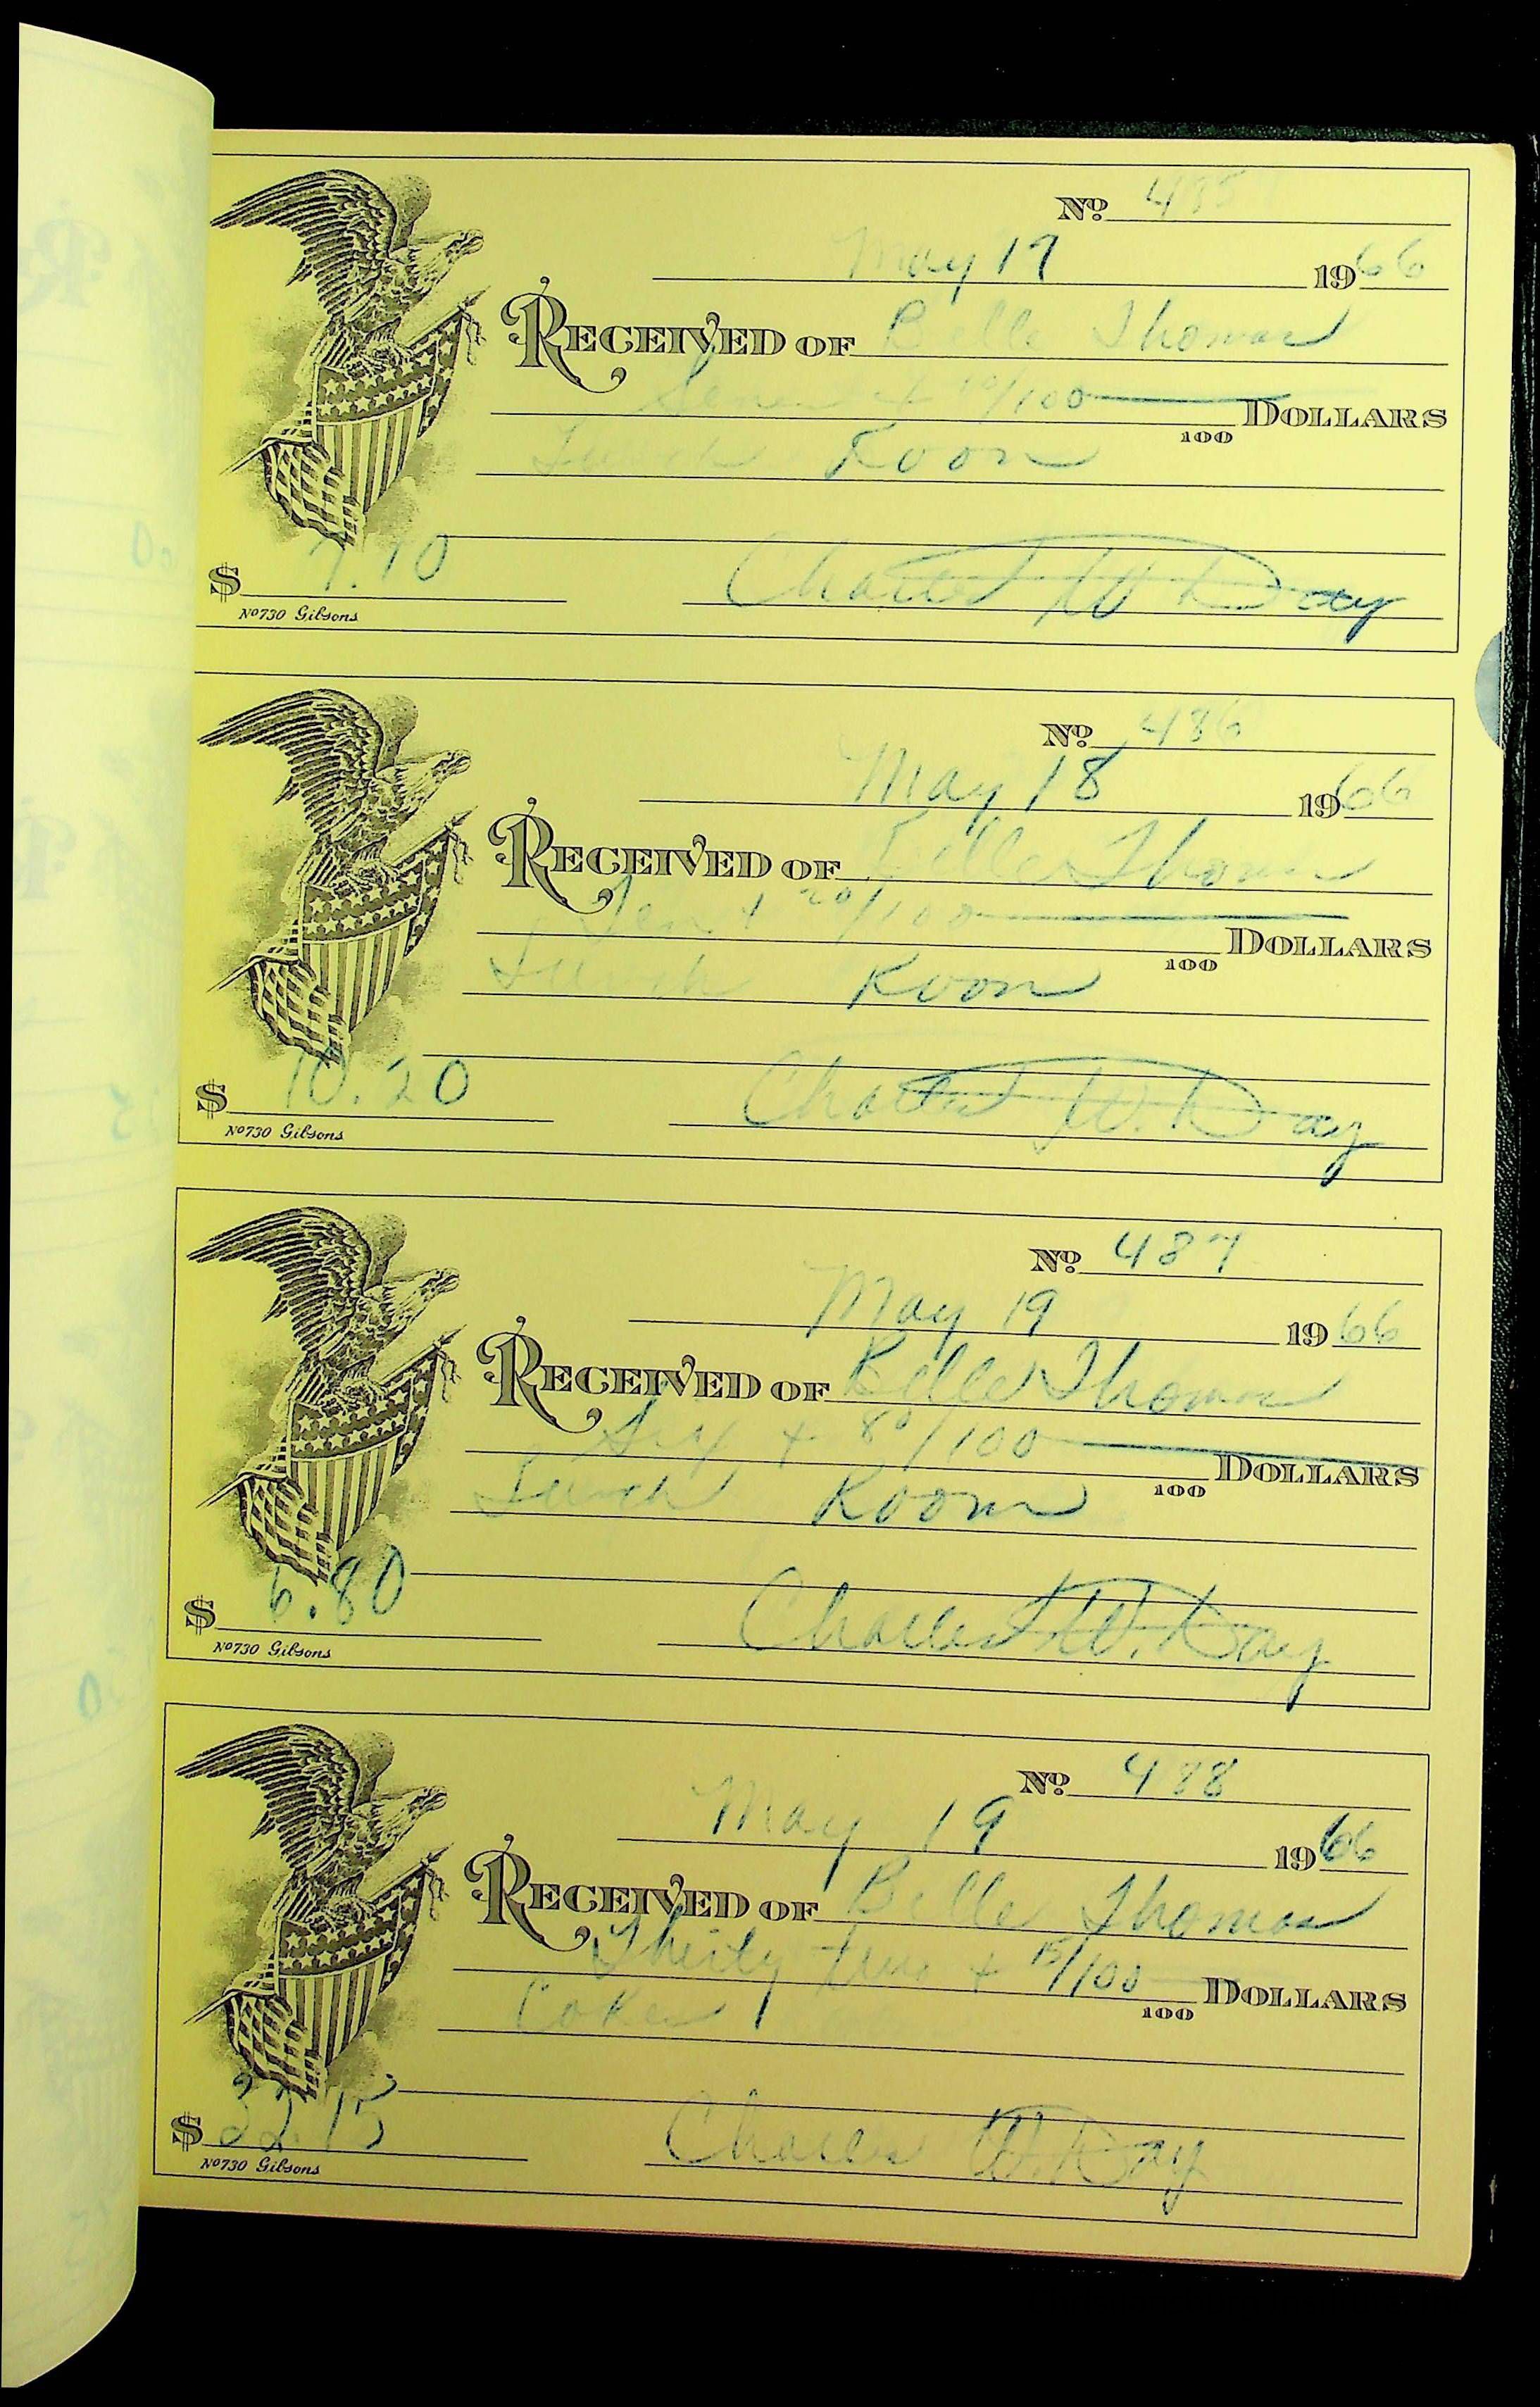 No. 485
May 17 1966
RECEIVED OF Belle Thomas
Seven + 10/100 DOLLARS
100
Lunch Room
$ 7.10 Charles W Day
No 730 Gibsons
No. 486
May 18 1966
RECEIVED OF Belle Thomas
Ten + 20/100 DOLLARS
100
Lunch Room
$ 10.20 Charles W. Day
No 730 Gibsons
No. 487
May 19 1966
RECEIVED OF Belle Thomas
Six + 80/100 DOLLARS
100
Lunch Room
$ 6.80 Charles W. Day
No 730 Gibsons
No. 488
May 19 1966
RECEIVED OF Belle Thomas
Thirty two + 15/100 DOLLARS
100
Coke
$ 32.15 Charles W. Day
No 730 Gibsons